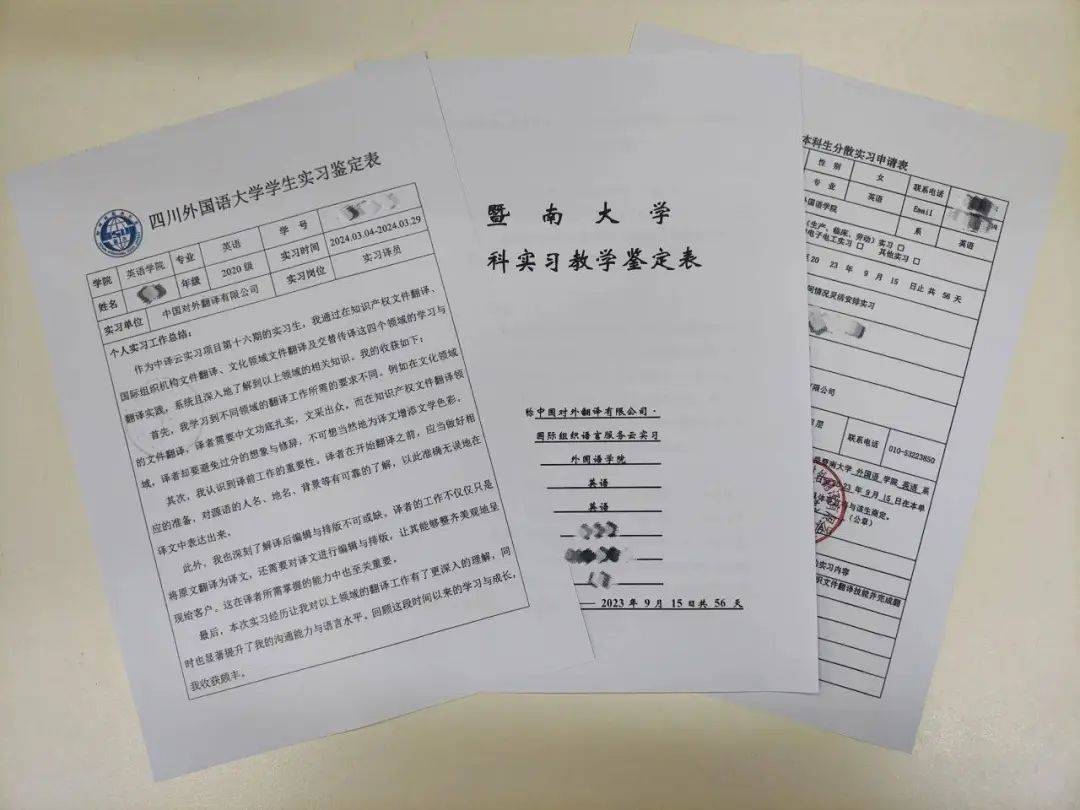 四川外国语大学学生实习鉴定表
学院 英语学院 专业 英语 学 号
姓名 年级 2020 级 实习时间 2024.03.04-2024.03.29
实习单位 中国对外翻译有限公司 实习岗位 实习译员
个人实习工作总结：
作为中译云实习项目第十六期的实习生，我通过在知识产权文件翻译、
国际组织机构文件翻译、文化领域文件翻译及交替传译这四个领域的学习与
翻译实践，系统且深入地了解到以上领域的相关知识。我的收获如下：
首先，我学习到不同领域的翻译工作所需的要求不同。例如在文化领域
的文件翻译，译者需要中文功底扎实，文采出众，而在知识产权文件翻译领
域，译者却要避免过分的想象与修辞，不可想当然地为译文增添文学色彩。
其次，我认识到译前工作的重要性。译者在开始翻译之前，应当做好相
应的准备，对源语的人名、地名、背景等有可靠的了解，以此准确无误地在
译文中表达出来。
此外，我也深刻了解译后编辑与排版不可或缺。译者的工作不仅仅只是
将原文翻译为译文，还需要对译文进行编辑与排版，让其能够整齐美观地呈
现给客户。这在译者所需掌握的能力中也至关重要。
最后，本次实习经历让我对以上领域的翻译工作有了更深入的理解，同
时也显著提升了我的沟通能力与语言水平。回顾这段时间以来的学习与成长，
我收获颇丰。
暨 南 大 学
科实习教学鉴定表
称中国对外翻译有限公司·
国际组织语言服务云实习
外国语学院
英语
英语
2023 年 9 月 15 日共 56 天
本科生分散实习申请表
性 别 女 联系电话
专 业 英语 Email
外国语学院 系 英语
（生产、临床、劳动）实习 □
电子电工实习 □ 其他实习 □
至20 23 年 9 月 15 日止共 56 天
情况灵活安排实习
有限公司
层 联系电话 010-53223850
暨南大学 外国语 学院 英语 系
23 年 9 月 15 日在本单
与该生商定。
（公章）
实习内容
识文件翻译技能并完成翻